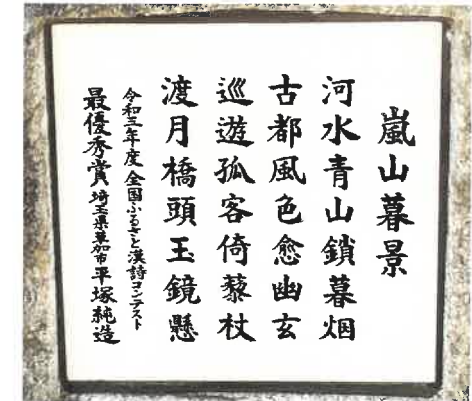 嵐山暮景
河水青山鎖暮烟
古都風色愈幽玄
巡遊孤客倚藜杖
渡月橋頭玉鏡懸
令和三年度 全国ふるさと漢詩コンテスト
最優秀賞 埼玉県草加市 平塚純造